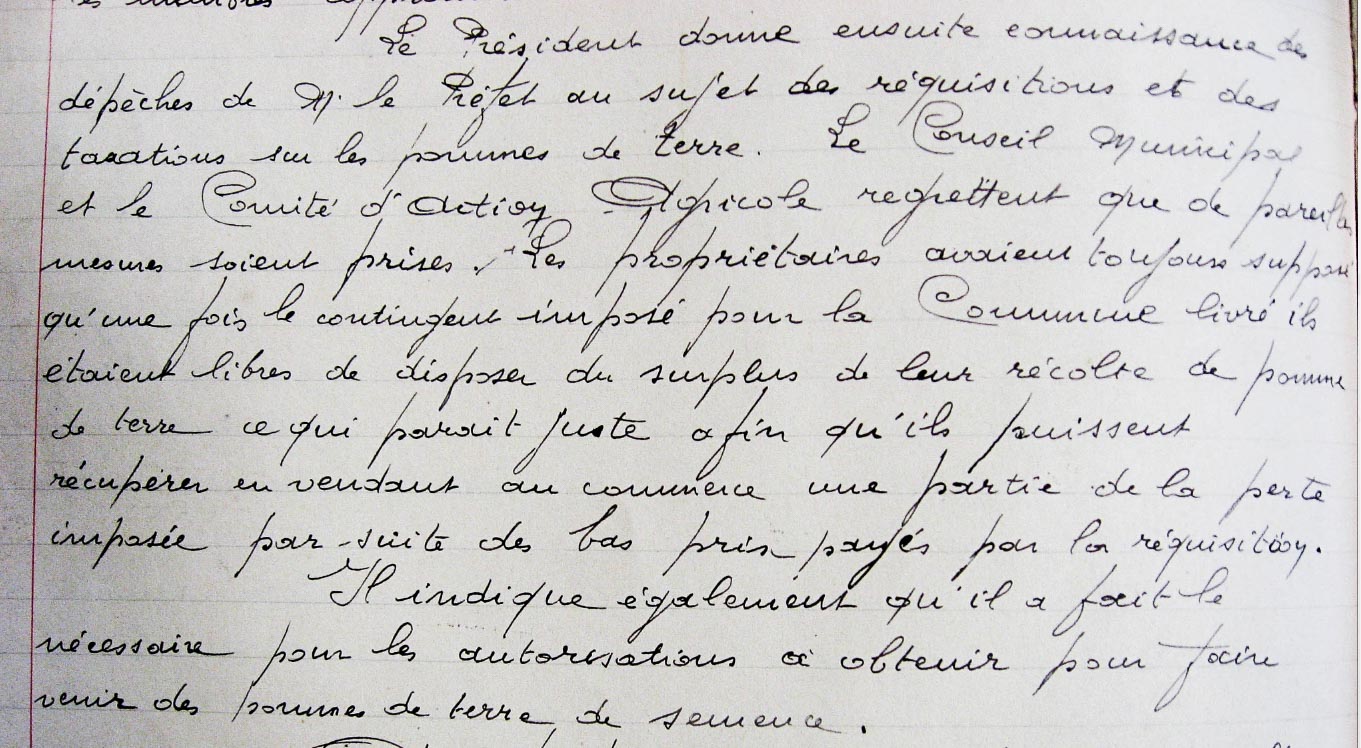 Le Président donne ensuite connaissance des
dépêches de M. le Préfet au sujet des réquisitions et des
taxations sur les pommes de terre. Le Conseil Municipal
et le Comité d'Action Agricole regrettent que de pareilles
mesures soient prises. Les propriétaires avaient toujours supposé
qu'une fois le contingent imposé pour la Commune livré ils
étaient libres de disposer du surplus de leur récolte de pomme
de terre ce qui parait juste afin qu'ils puissent
récupérer en vendant au commerce une partie de la perte
imposée par suite des bas prix payés par la réquisition.
Il indique également qu'il a fait le
nécessaire pour les autorisations à obtenir pour faire
venir des pommes de terre de semence.